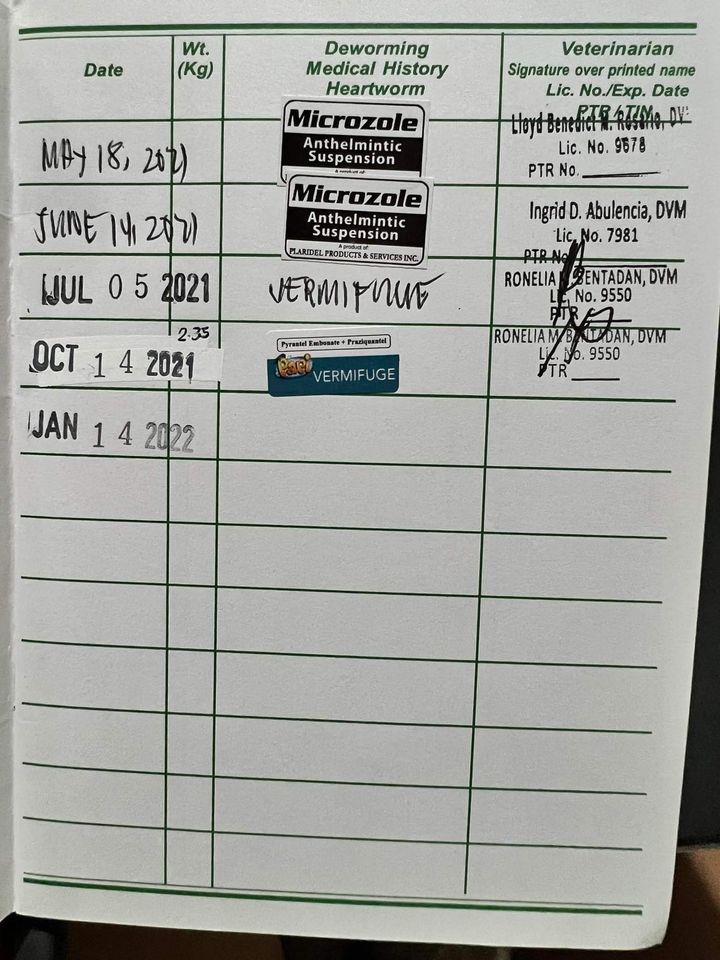 Date
Wt.
(Kg)
Deworming
Medical History
Heartworm
Veterinarian
Signature over printed name
Lic. No./Exp. Date
PTR / TIN
MAY 18, 2021
Microzole
Anthelmintic
Suspension
A product of:
Lloyd Benedict M. Rosario, DV
Lic. No. 9678
PTR No.
JUNE 14, 2021
Microzole
Anthelmintic
Suspension
A product of:
PLARIDEL PRODUCTS & SERVICES INC.
Ingrid D. Abulencia, DVM
Lic. No. 7981
PTR No
JUL 05 2021
VERMIFUGE
RONELIA BENTADAN, DVM
Lic. No. 9550
PTR
OCT 14 2021
2.35
Pyrantel Embonate + Praziquantel
Papi
VERMIFUGE
RONELIA M. BENTADAN, DVM
Lic. No. 9550
PTR
JAN 14 2022